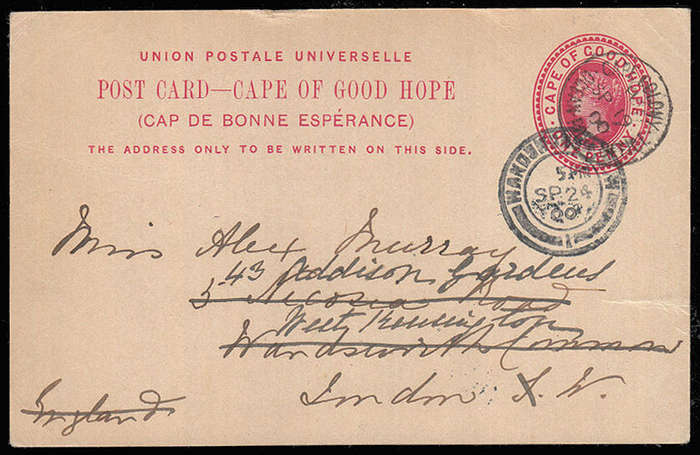 UNION POSTALE UNIVERSELLE
POST CARD—CAPE OF GOOD HOPE
(CAP DE BONNE ESPÉRANCE)
THE ADDRESS ONLY TO BE WRITTEN ON THIS SIDE.
CAPE OF GOOD HOPE.
ONE PENNY
COLONY
SP
00
5 PM
SP 24
00
1
Miss Alex Murray
43 Addison Gardens
5 Nicosia Road
West Kensington
Wandsworth Common
London S.W.
England